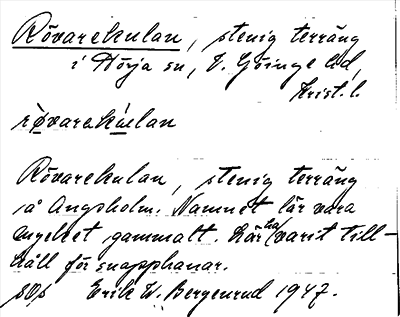 Rövarekulan, stenig terräng
i Hörja sn, V. Göinge hd,
Krist. l.
rø̀varekúlan
Rövarekulan, stenig terräng
på Angsholm. Namnet lär vara
mycket gammalt. Lär ha varit till-
håll för snapphanar.
Erik W. Bergenrud 1947.